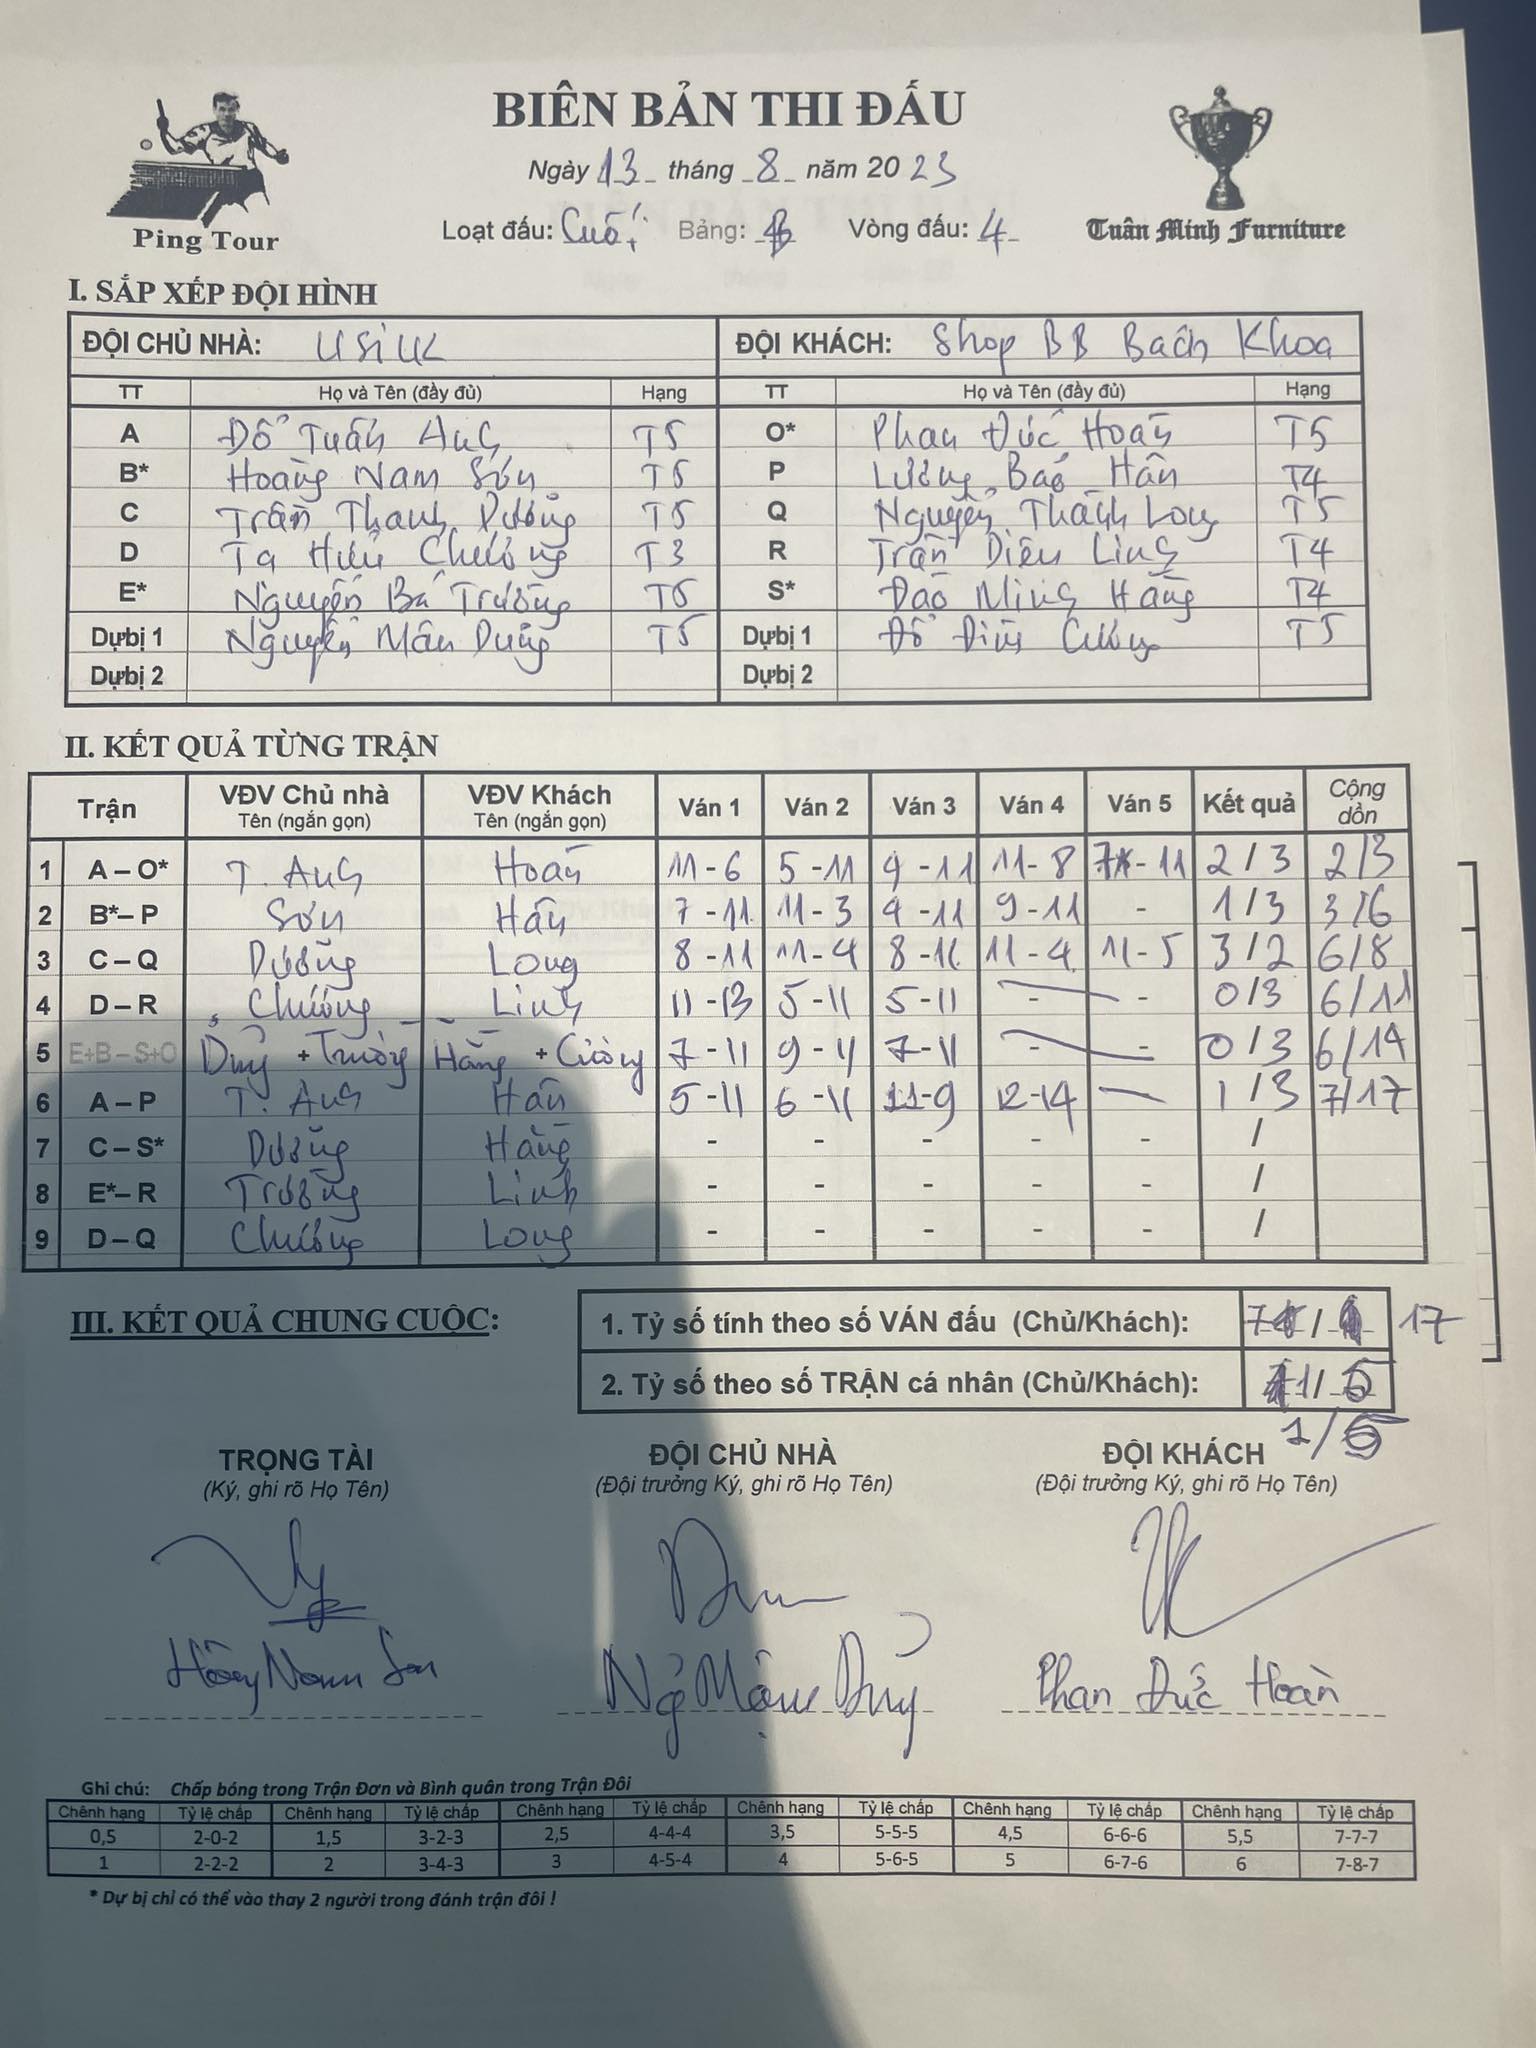 BIÊN BẢN THI ĐẤU
Ngày 13 tháng 8 năm 2023
Loạt đấu: Cuối Bảng: B Vòng đấu: 4
Ping Tour
Tuân Minh Furniture
I. SẮP XẾP ĐỘI HÌNH
ĐỘI CHỦ NHÀ: USiUK ĐỘI KHÁCH: Shop BB Bách Khoa
TT Họ và Tên (đầy đủ) Hạng TT Họ và Tên (đầy đủ) Hạng
A Đỗ Tuấn Anh T5 O* Phan Đức Hoàn T5
B* Hoàng Nam Sơn T5 P Lương Bảo Hân T4
C Trần Thanh Dương T5 Q Nguyễn Thành Long T5
D Tạ Hữu Chương T3 R Trần Diệu Linh T4
E* Nguyễn Bá Trường T5 S* Đào Minh Hằng T4
Dựbị 1 Nguyễn Mậu Dũng T5 Dựbị 1 Đỗ Đình Cường T5
Dựbị 2 Dựbị 2
II. KẾT QUẢ TỪNG TRẬN
Trận VĐV Chủ nhà VĐV Khách Ván 1 Ván 2 Ván 3 Ván 4 Ván 5 Kết quả Cộng dồn
Tên (ngắn gọn) Tên (ngắn gọn)
1 A – O* T. Anh Hoàn 11 - 6 5 - 11 9 - 11 11 - 8 7 - 11 2 / 3 2/3
2 B*– P Sơn Hân 7 - 11 11 - 3 9 - 11 9 - 11 - 1 / 3 3/6
3 C – Q Dương Long 8 - 11 11 - 4 8 - 11 11 - 4 11 - 5 3 / 2 6/8
4 D – R Chương Linh 11 - 13 5 - 11 5 - 11 - - 0/3 6/11
5 E+B – S+O + Trường Hằng + Cường 7 - 11 9 - 11 7 - 11 - - 0/3 6/14
6 A – P T. Anh Hân 5 - 11 6 - 11 11-9 12-14 — 1 / 3 7/17
7 C – S* Dương Hằng - - - - - /
8 E*– R Trường Linh - - - - - /
9 D – Q Chương Long - - - - - /
III. KẾT QUẢ CHUNG CUỘC:
1. Tỷ số tính theo số VÁN đấu (Chủ/Khách): 7 / 17
2. Tỷ số theo số TRẬN cá nhân (Chủ/Khách): 1/5
1/5
TRỌNG TÀI ĐỘI CHỦ NHÀ ĐỘI KHÁCH
(Ký, ghi rõ Họ Tên) (Đội trưởng Ký, ghi rõ Họ Tên) (Đội trưởng Ký, ghi rõ Họ Tên)
Hoàng Nam Sơn Phan Đức Hoàn
Ghi chú: Chấp bóng trong Trận Đơn và Bình quân trong Trận Đôi
Chênh hạng Tỷ lệ chấp Chênh hạng Tỷ lệ chấp Chênh hạng Tỷ lệ chấp Chênh hạng Tỷ lệ chấp Chênh hạng Tỷ lệ chấp Chênh hạng Tỷ lệ chấp
0,5 2-0-2 1,5 3-2-3 2,5 4-4-4 3,5 5-5-5 4,5 6-6-6 5,5 7-7-7
1 2-2-2 2 3-4-3 3 4-5-4 4 5-6-5 5 6-7-6 6 7-8-7
* Dự bị chỉ có thể vào thay 2 người trong đánh trận đôi !